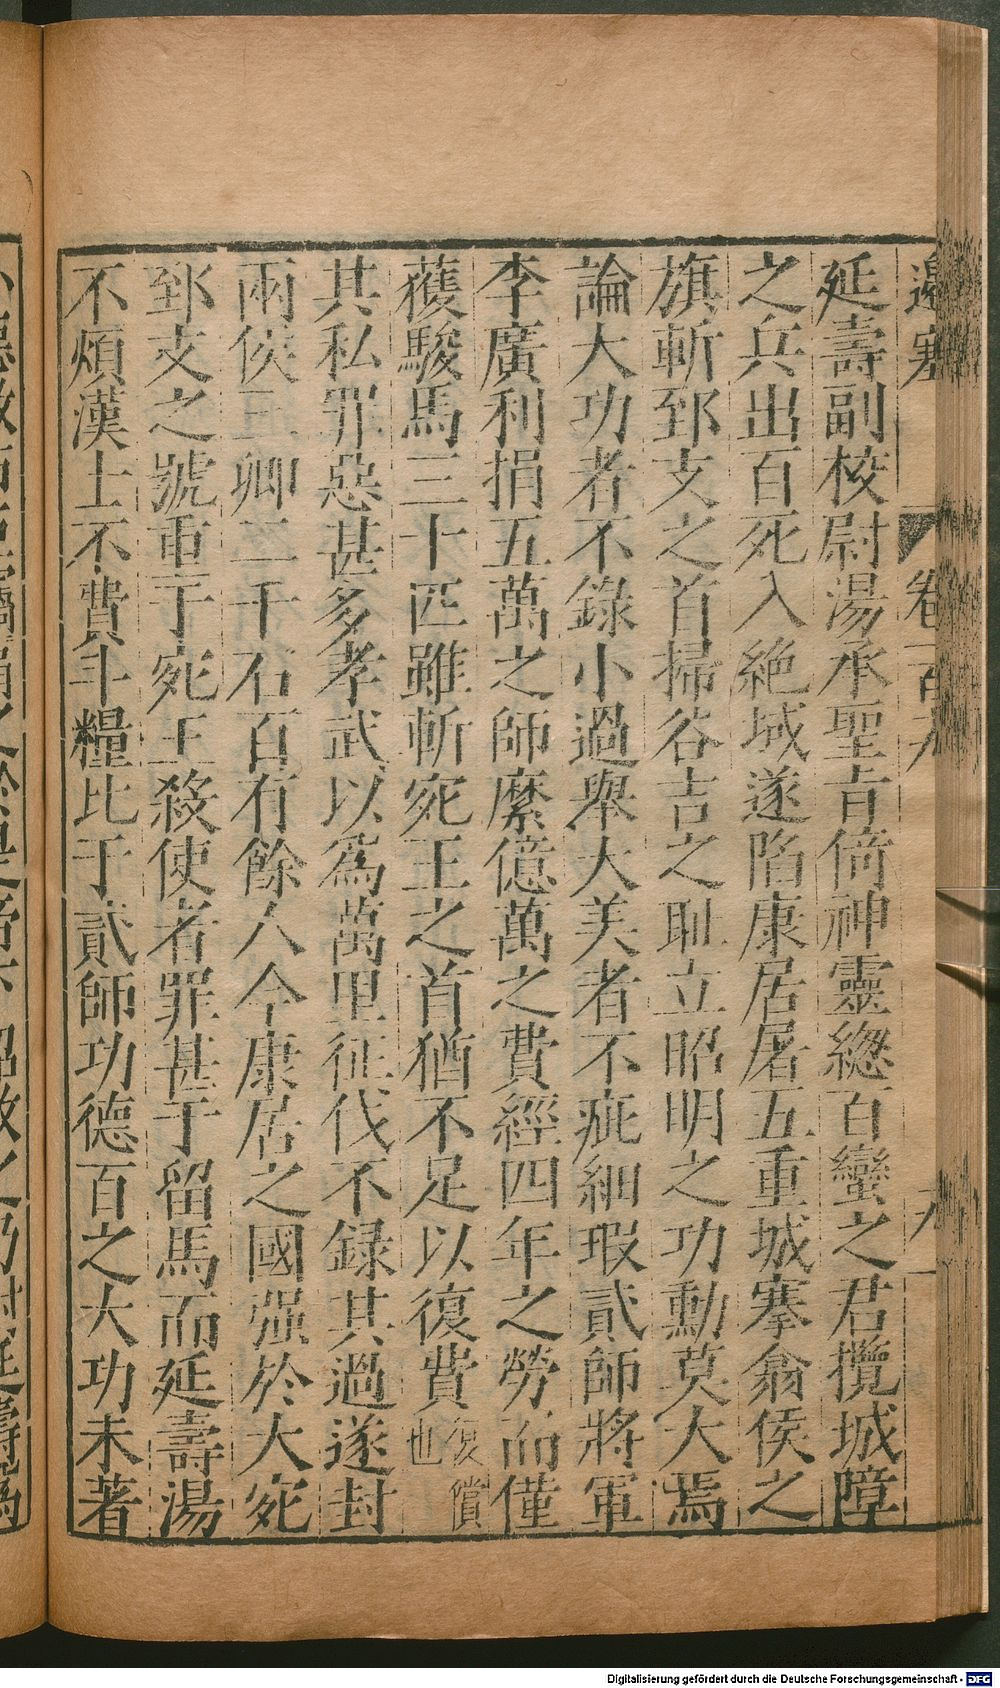 邊塞 卷一百九 十八
延壽副校尉湯承聖旨倚神靈緫百蠻之君攬城障
之兵出百死入絕域遂陷康居屠五重城搴翕侯之
旗斬郅支之首掃谷吉之耻立昭明之功勳莫大焉
論大功者不錄小過舉大美者不疵細瑕貳師將軍
李廣利捐五萬之師縻億萬之費經四年之勞而僅
獲駿馬三十匹雖斬宛王之首猶不足以復費復償也
其私罪惡甚多孝武以爲萬里征伐不録其過遂封
兩侯三卿二千石百有餘人今康居之國强於大宛
郅支之號重于宛王殺使者罪甚于留馬而延壽湯
不煩漢士不費斗糧比于貳師功德百之大功未著
Digitalisierung gefördert durch die Deutsche Forschungsgemeinschaft - DFG